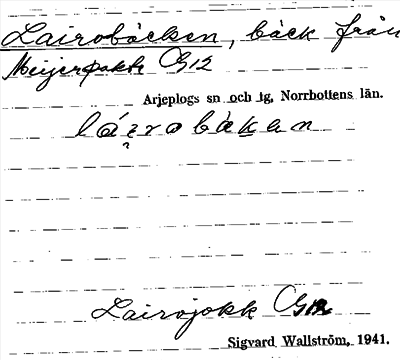 Lairobäcken, bäck från
Meijerjåkk G12
Arjeplogs sn och tg, Norrbottens län.
láịrobäkən
Lairojokk G12
Sigvard Wallström, 1941.